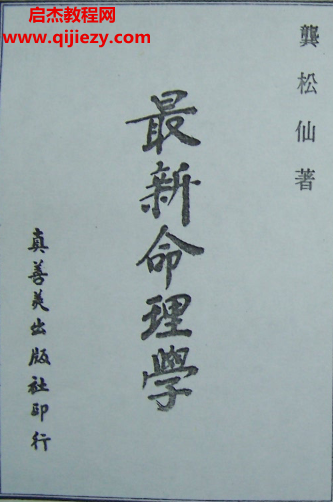 启杰教程网
www.qijiezy.com
龔松仙著
最新命理學
真善美出版社印行